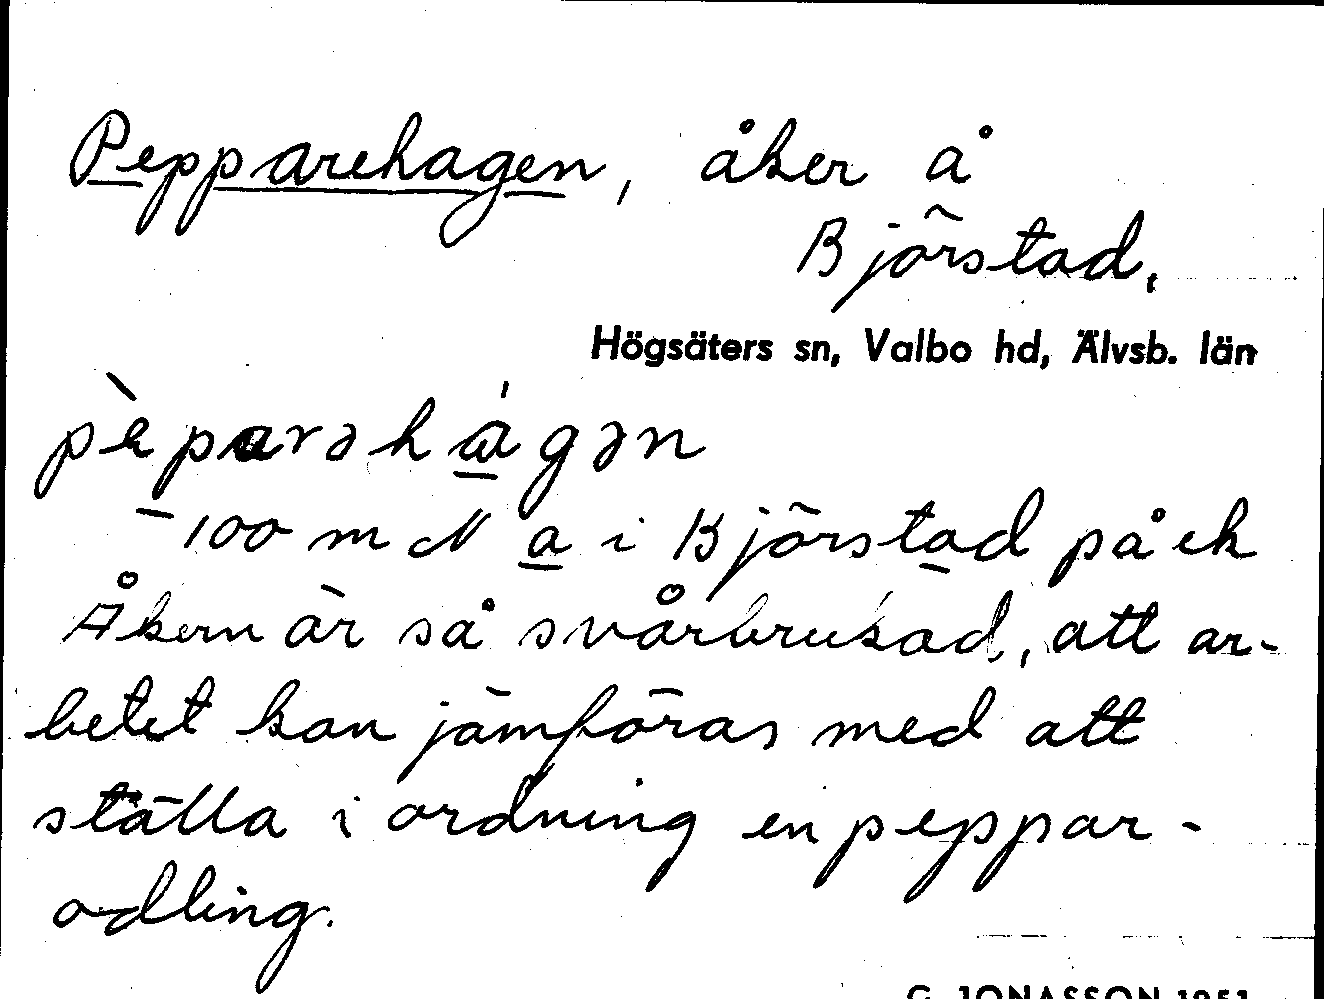 Pepparehagen, åker å
Björstad,
Högsäters sn, Valbo hd, Älvsb. län
pɛ̀parəhágən
–100 m N a i Björstad på ek
Åkern är så svårbrukad, att ar-
betet kan jämföras med att
ställa i ordning en peppar-
odling.
G. JONASSON 1951